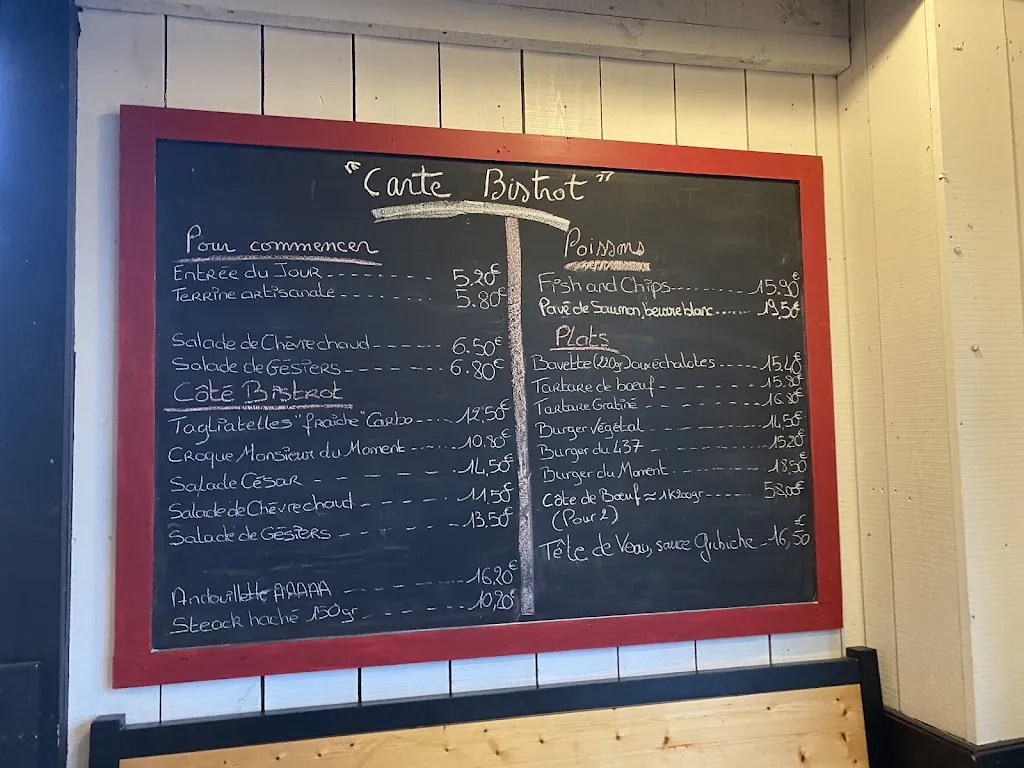 "Carte Bistrot"
Pour commencer
Entrée du Jour 5.20€
Terrine artisanale 5.80€
Salade de Chèvre chaud 6.50€
Salade de Gésiers 6.80€
Côté Bistrot
Tagliatelles "fraîche" Carbo 12,50€
Croque Monsieur du Moment 10,80€
Salade César 14,50€
Salade de Chèvre chaud 11,50€
Salade de Gésiers 13.50€
Andouillette AAAAA 16,20€
Steack haché 150gr 10,20€
Poissons
Fish and Chips 15.90€
Pavé de Saumon, beurre blanc 19,50€
Plats
Bavette (220gr) aux échalotes 15.40€
Tartare de bœuf 15.80€
Tartare Gratiné 16.80€
Burger végétal 14,50€
Burger du 437 15.20€
Burger du Moment 18.50€
Côte de Bœuf ≈ 1K200gr 58.00€
(Pour 2)
Tête de Veau, sauce Gribiche 16,50€